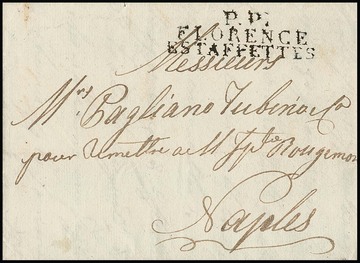 P.P.
FLORENCE
ESTAFFETTES
Messieurs
Mrs Pagliano Tubino & Co
pour remettre a Mr Jph Rougemon
Naples